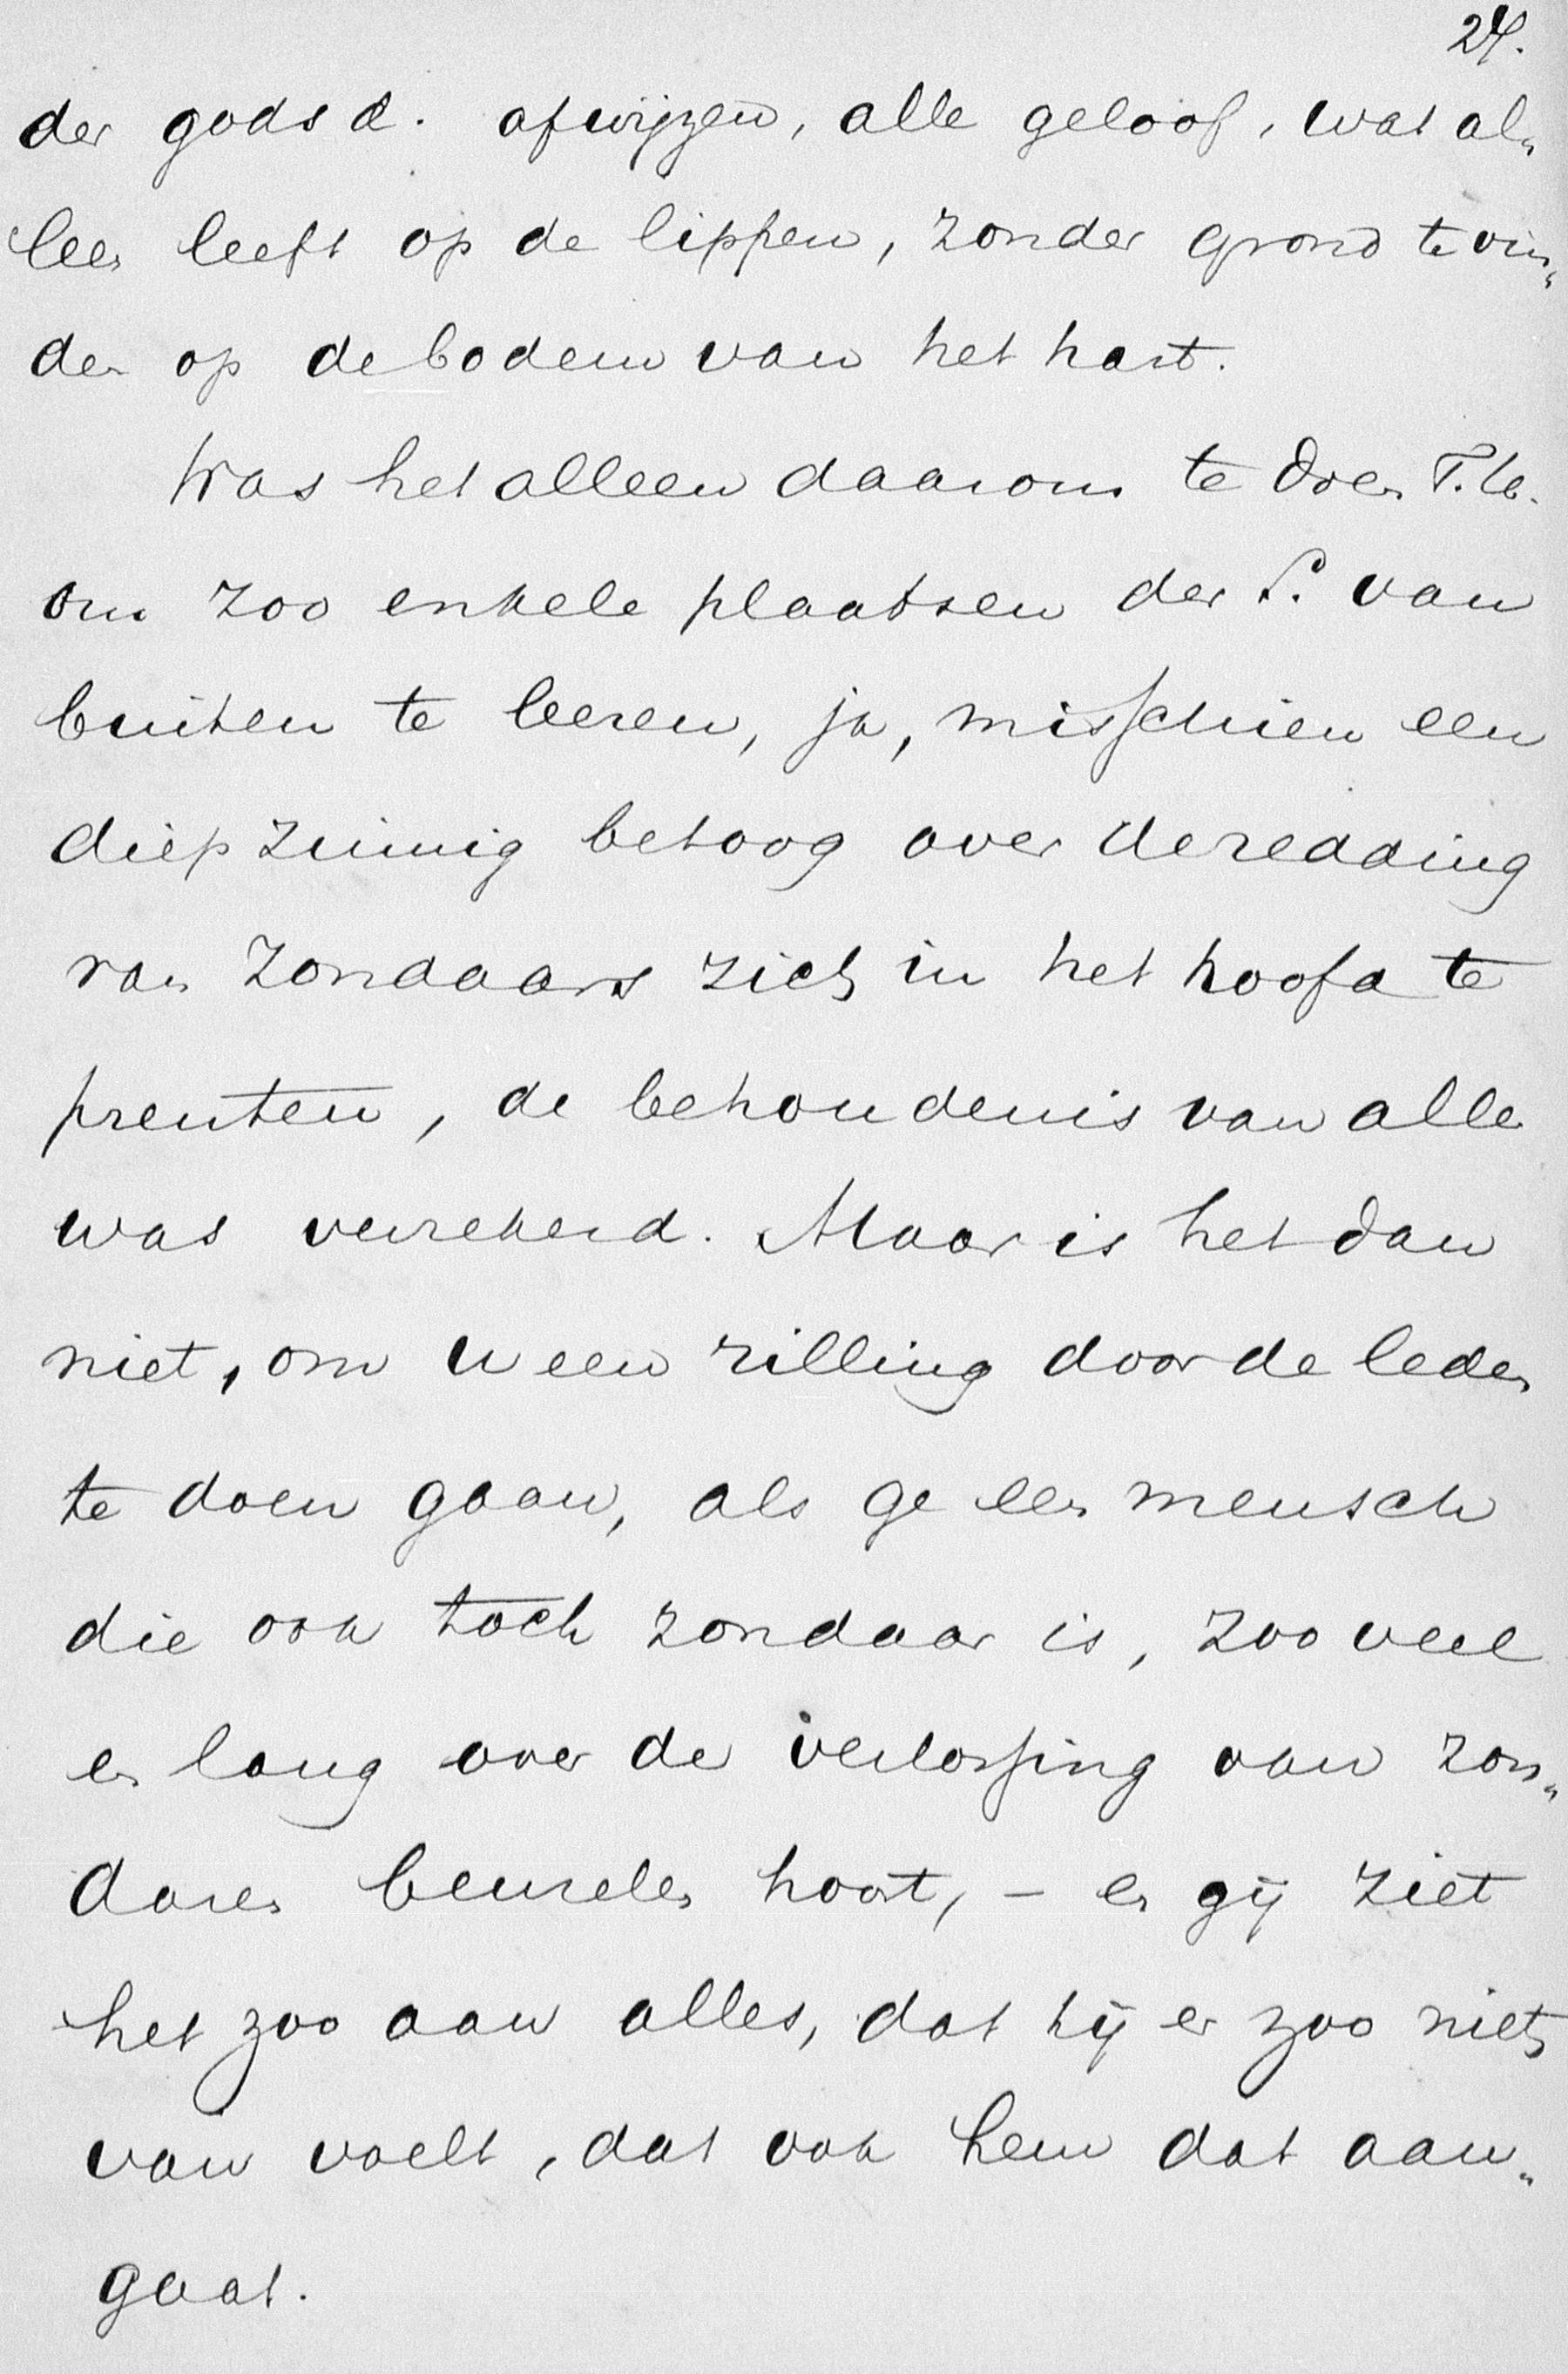 24.
der godsd. afwijzen, alle geloof, wat al„
leen leeft op de lippen, zonder grond te vin„
den op de bodem van het hart.
Was het alleen daarom te doen T. G.
om zoo enkele plaatsen der S. van
buiten te leeren, ja, misschien een
diepzinnig betoog over de redding
van zondaars zich in het hoofd te
prenten, de behoudenis van allen
was verzekerd. Maar is het dan
niet, om u een rilling door de leden
te doen gaan, als ge een mensch
die ook toch zondaar is, zoo veel
en lang over de verlossing van zon„
daren beuzelen hoort, – en gij ziet
het zoo aan alles, dat hij er zoo niets
van voelt, dat ook hem dat aan„
gaat.